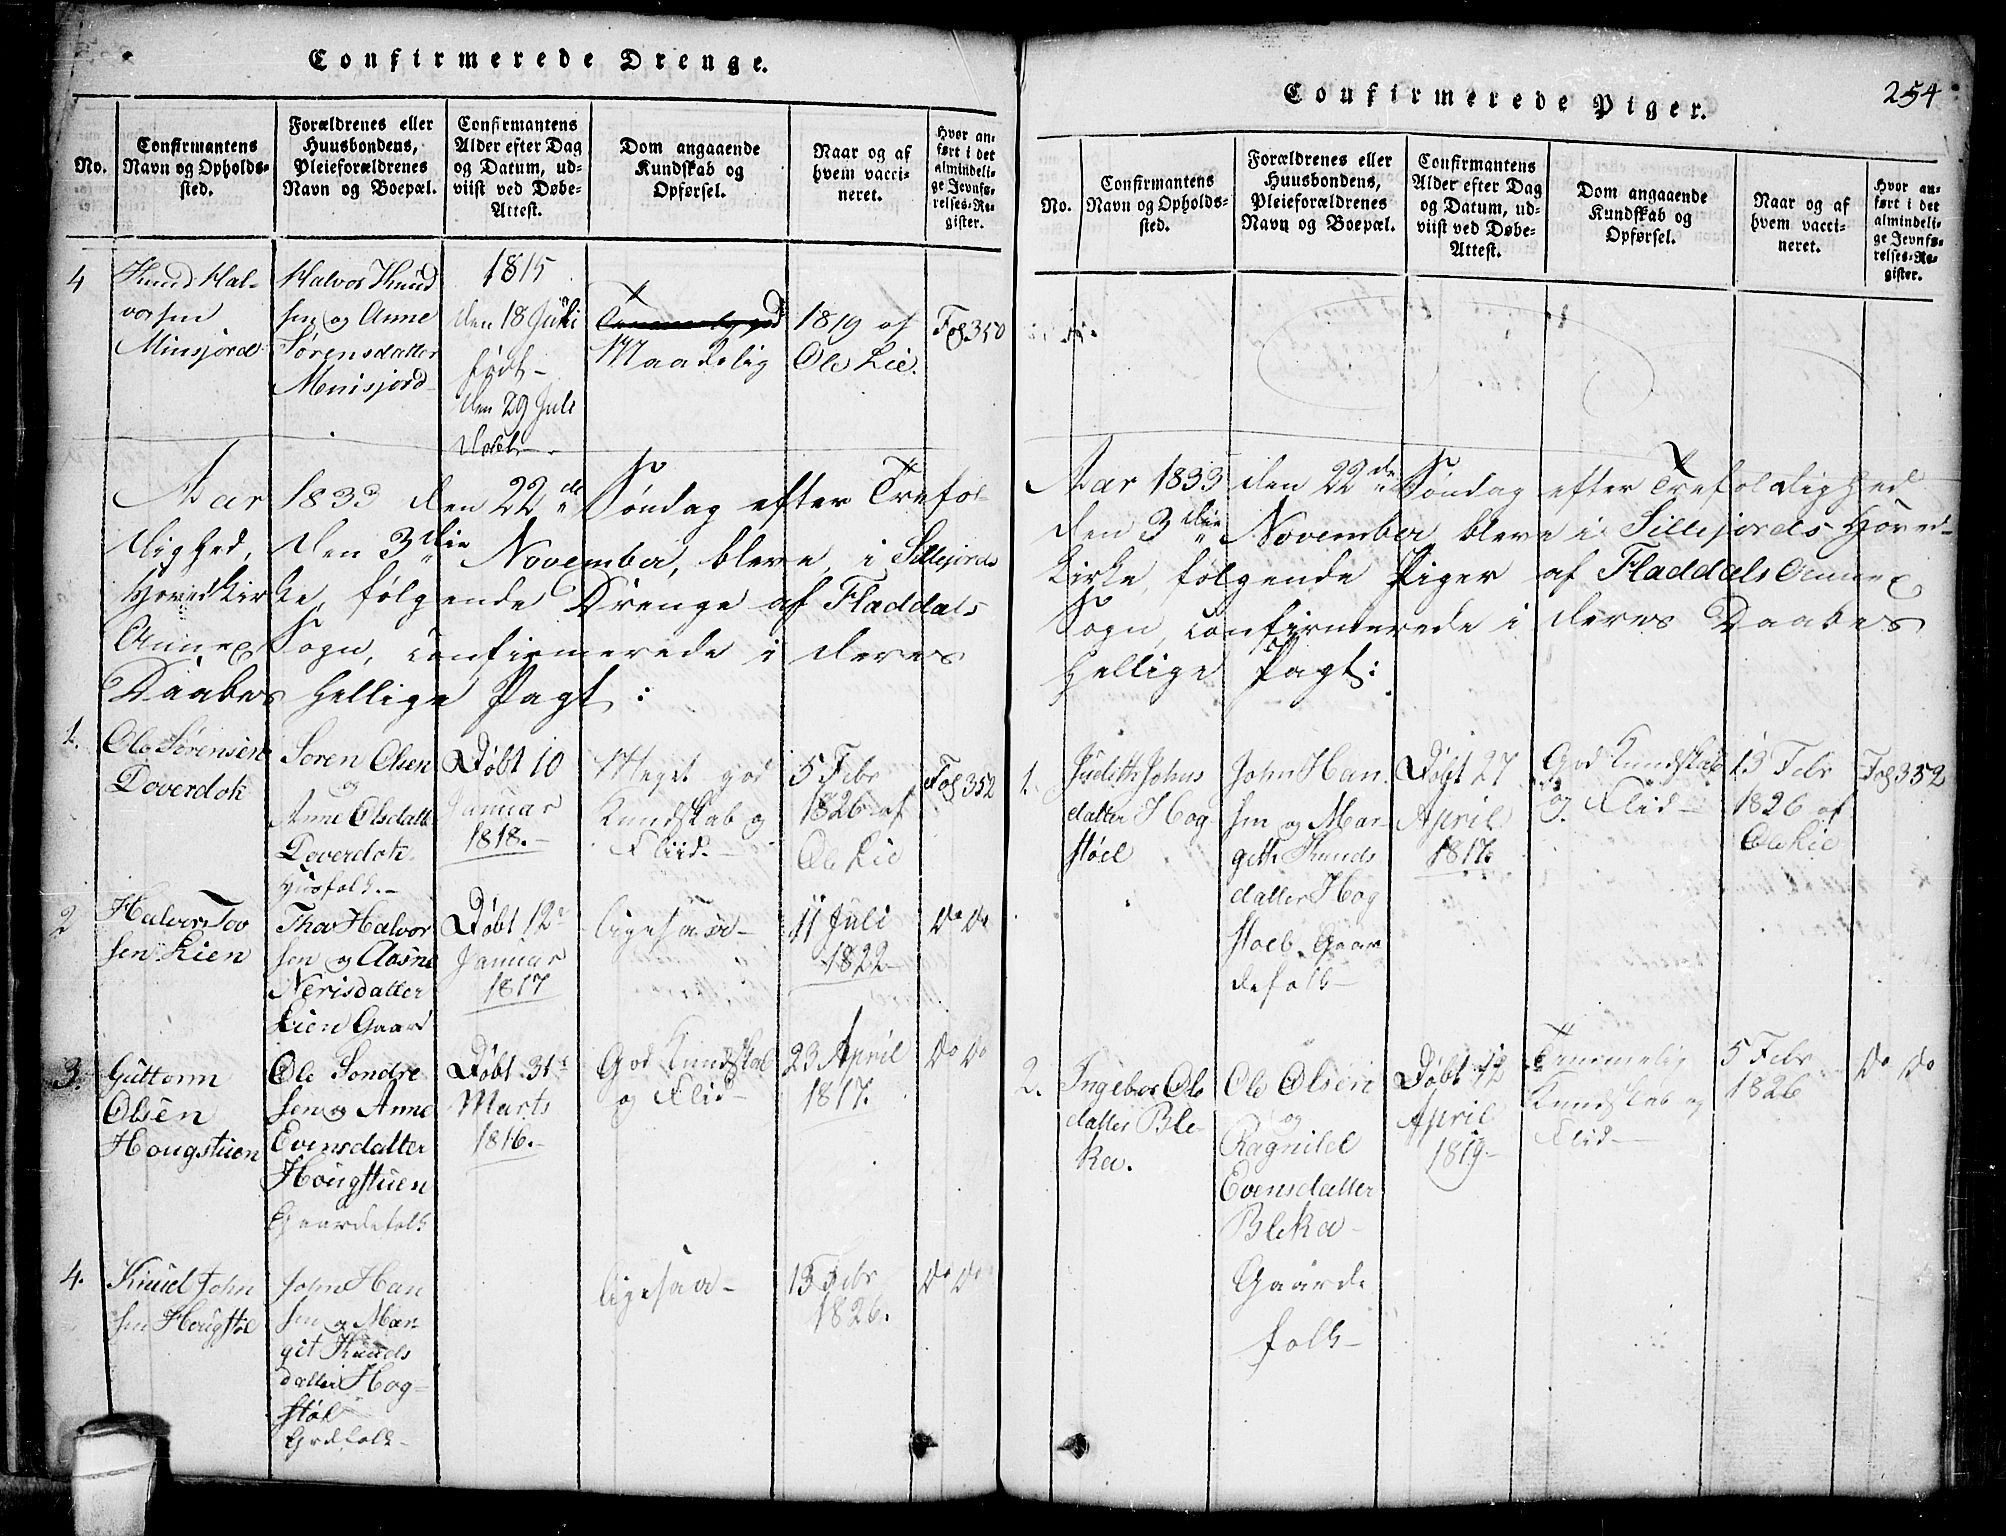 Confirmerede Drenge.
No.
Confirmantens
Navn og Opholds-
sted.
Forældrenes eller
Huusbondens,
Pleieforældrenes
Navn og Boepæl.
Confirmantens
Alder efter Dag
og Datum, ud-
viist ved Døbe-
Attest.
Dom angaaende
Kundskab og
Opførsel.
Naar og af
hvem vacci-
neret.
Hvor an-
ført i det
almindeli-
ge Jevnfø-
relses-Re-
gister.
4
Knud Hal-
vorsen
Minsjord
Halvor Knud
sen og Anne
Sørensdatter
Menisjord
1815
den 18 Juli
født
den 29 Juli
døbt
Maadelig
1819 af
Ole Lie.
Fol 350
Aar 1833 den 22de Søndag efter Trefol-
dighed, den 3die November, bleve, i Sillejords
Hovedkirke, følgende Drenge af Fladdals
Annex Sogn, confirmerede i deres
Daabes hellige Pagt:
1.
Ole Sørensen
Doverdok
Soren Olsen
og
Anne Olsdatt
Doverdok
Huusfolk.
Døbt 10
Januar
1818.
Meget god
Kundskab og
Fliid.
5 Febr
1826 af
Ole Lie
Fol 352
2
Halvor Tov
sen Lien
Thov Halvor
sen og Aasne
Nerisdatter
Lien Gaard
Døbt 12
Januar
1817
ligesaa
11 Juli
1822
do do
3.
Guttorm
Olsen
Hougstuen
Ole Sondre
sen og Anne
Evensdatter
Hougstuen
Gaardefolk
Døbt 31
Marts
1816.
God Kundskab
og Flid
23 April
1817.
do do
4.
Knud John
sen Hougstøl
John Han
sen og Mar
git Knuds
datter Hog-
støl
Grdfolk
ligesaa
13 Febr
1826.
do do
254
Confirmerede Piger.
No.
Confirmantens
Navn og Opholds-
sted.
Forældrenes eller
Huusbondens,
Pleieforældrenes
Navn og Boepæl.
Confirmantens
Alder efter Dag
og Datum, ud-
viist ved Døbe-
Attest.
Dom angaaende
Kundskab og
Opførsel.
Naar og af
hvem vacci-
neret.
Hvor an-
ført i det
almindeli-
ge Jevnfø-
relses-Re-
gister.
Aar 1833 den 22de Søndag efter Trefoldighed
den 3die November bleve i Sillejords Hoved-
kirke, følgende Piger af Fladdals Annex
Sogn, confirmerede i deres Daabes
hellige Pagt:
1.
Judith Johns
datter Hog
støel
John Han
sen og Mar-
geth Knuds
datter Hog
stoel Gaar
defolk
Døbt 27
April
1817.
God Kundskab
og Flid
13 Febr
1826 af
Ole Lie
Fol 352
2.
Ingebor Ols
datter Ble-
ka.
Ole Olsen
og
Ragnild
Evensdatter
Bleka
Gaarde
folk
Døbt 12
April
1819
Temmelig
Kundskab og
Flid
5 Febr
1826
do do